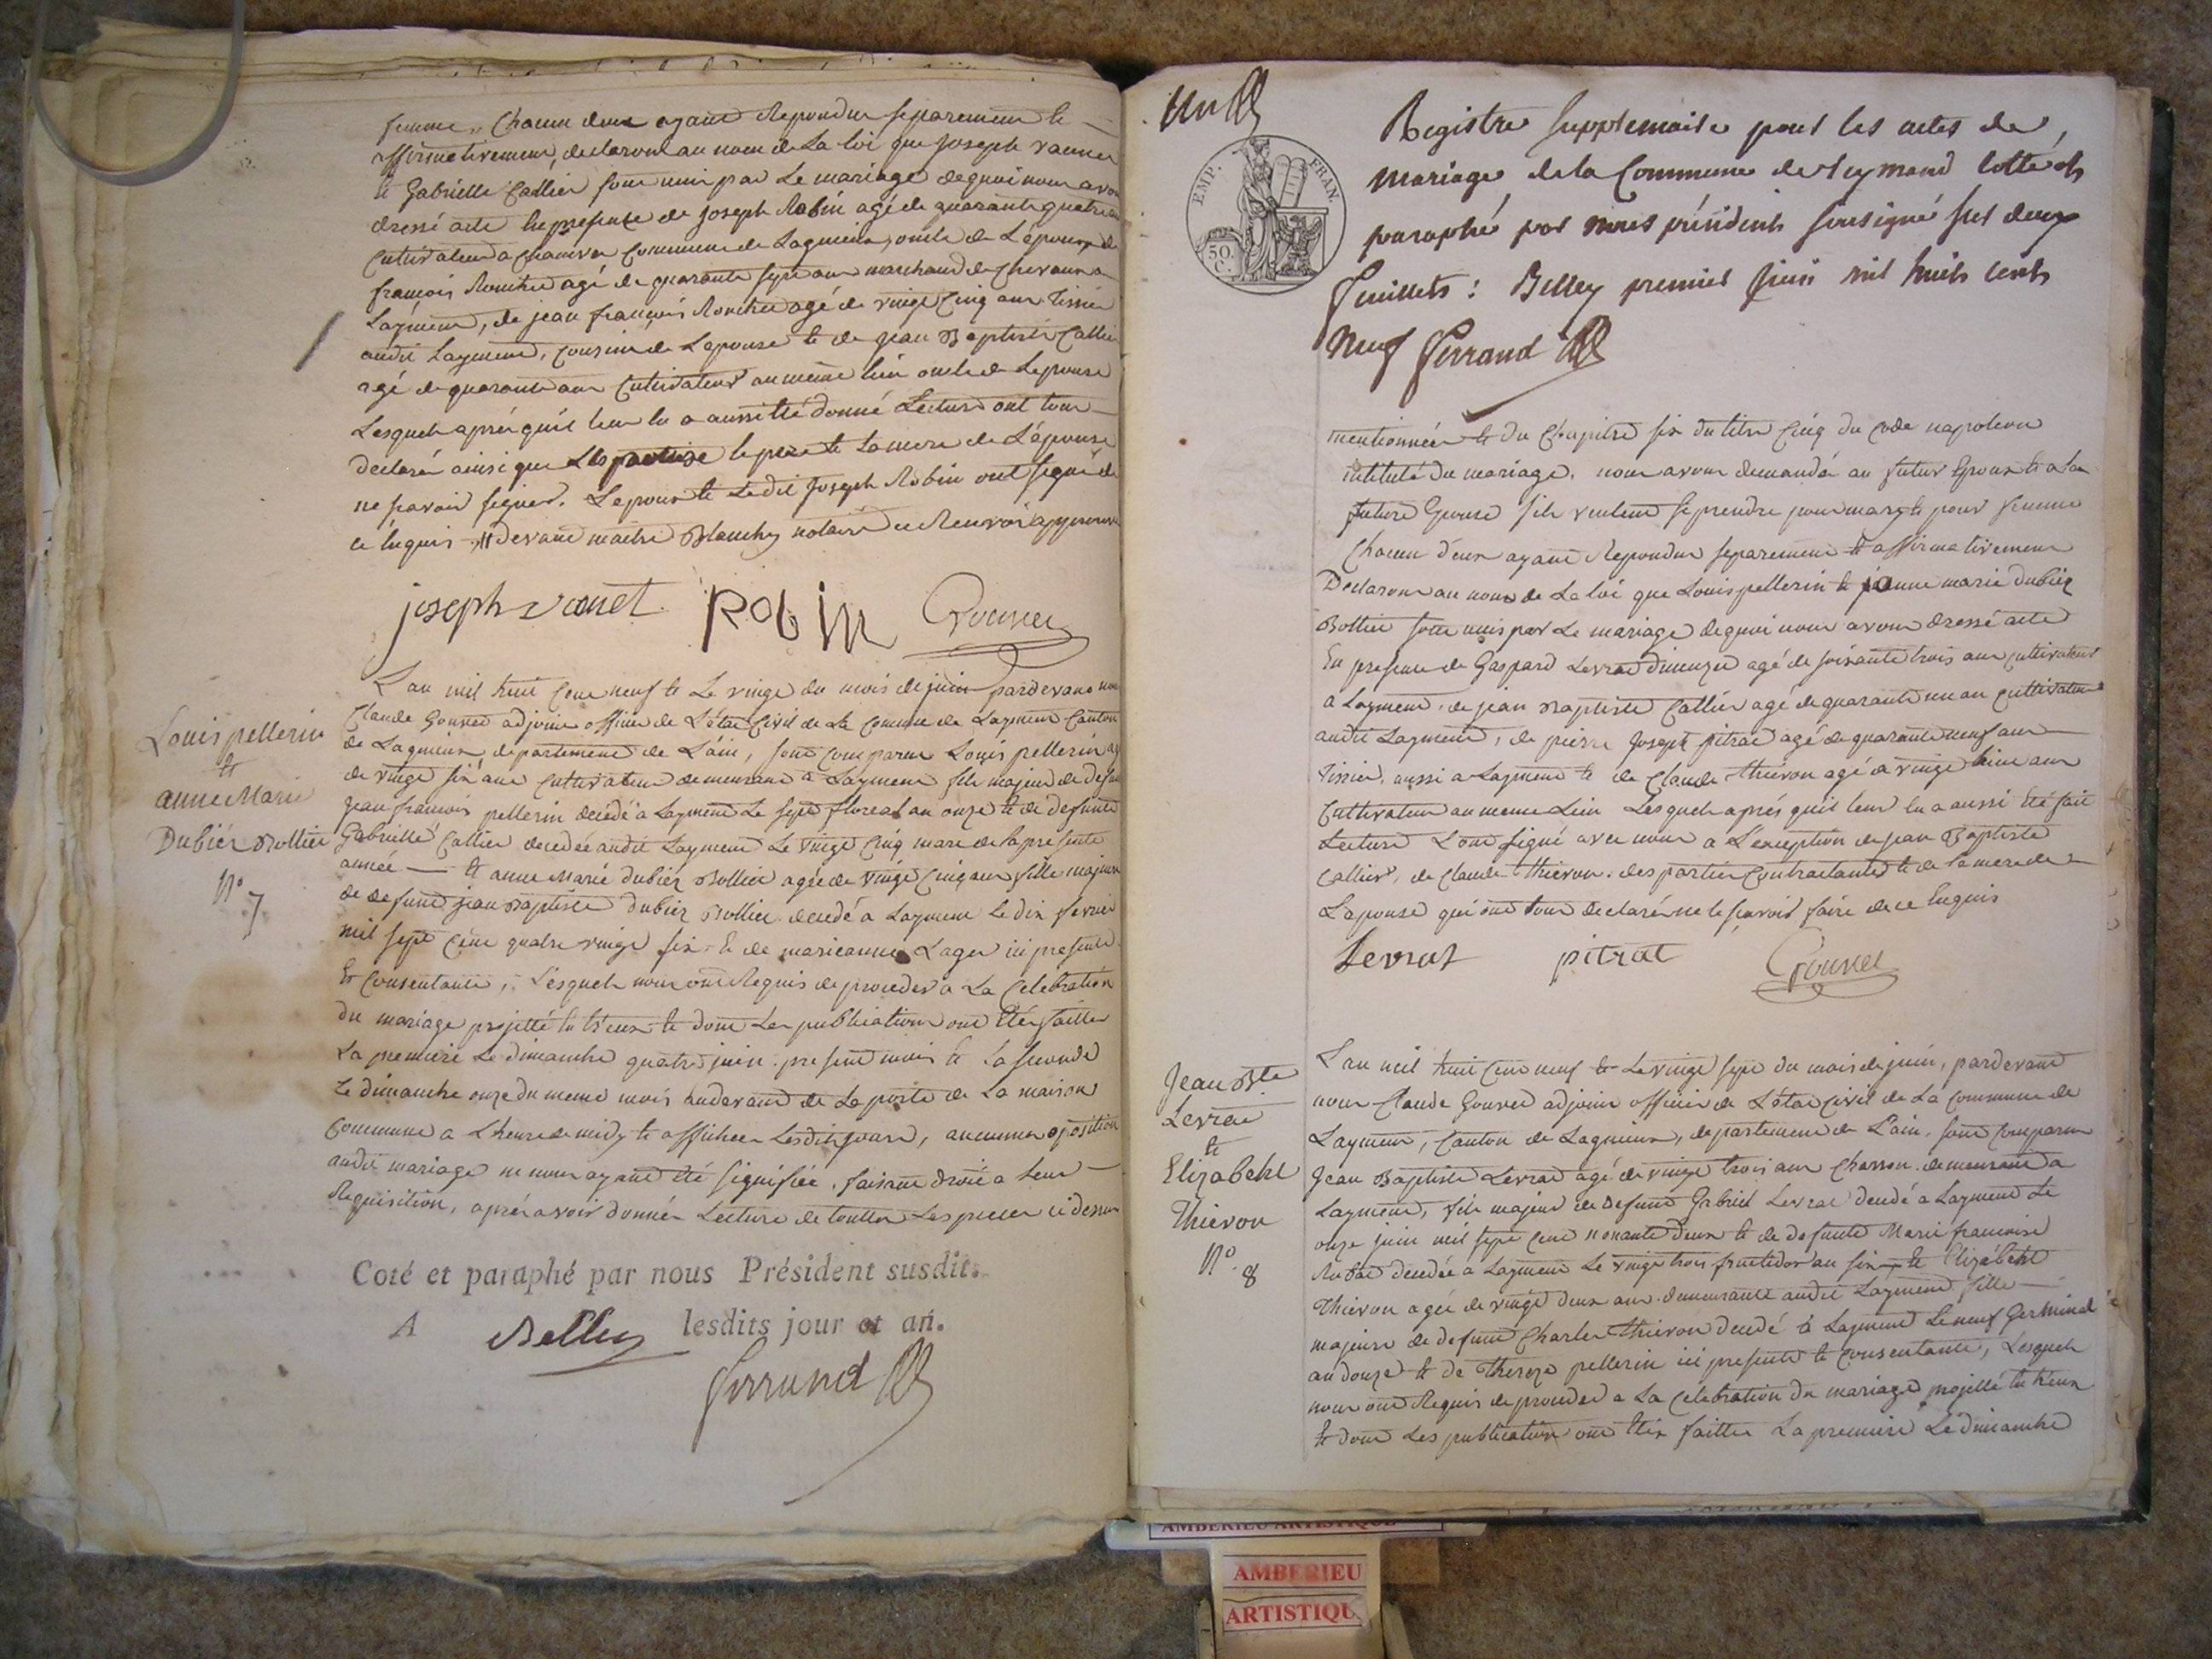 femme, Chacun deux ayant Repondu separement et
affirmativement, declarons au nom de La loi que Joseph vannet
et Gabrielle Callier sont unis par Le mariage dequoi nous avons
dressé acte En presence de Joseph Robin agé de quarante quatre ans
Cultivateur a Commune de Lagnieux, oncle de L'épouse de
françois agé de quarante sept ans marchand de Chevaux a
Layment, de jean françois agé de vingt Cinq ans Tissier
audit Layment, Cousin de Lepouse et de Jean Baptiste Callier
agé de quarante ans Cultivateur au meme lieu oncle de Lepouse
Lesquels aprés quil leur En a aussi Eté donné Lecture ont tous
declaré ainsi que le pere et La mere de L'épouse
ne savoir signer. Lepoux et Ledit Joseph Robin ont signé de
ce Enquis devant maitre Blanchy notaire ce Renvoi approuvé
joseph vanet RObin Gouvet
L'an mil huit Cent neuf et Le vingt du mois de juin pardevant nous
Claude Gouvet adjoint officier de L'état Civil de La Commune de Layment Canton
de Lagnieux, departement de L'ain, sont Comparus Louis pellerin agé
de vingt six ans Cultivateur demeurant a Layment fils majeur de defunt
Jean françois pellerin decédé a Layment Le sept floreal an onze et de defunte
Gabrielle Callier decedée audit Layment Le vingt Cinq mars de la presente
année — et anne Marie Dubiez Bollier agée de vingt Cinq ans fille majeure
de defunt jean Baptiste Dubiez Bollier decedé a Layment Le dix fevrier
mil sept Cent quatre vingt six et de marieanne Lager ici presente
Et Consentante, Lesquels nous ont Requis de proceder a La Celebration
du mariage projetté Entr'eux et dont Les publications ont Eté faittes
La premiere Le dimanche quatre juin present mois et La seconde
Le dimanche onze du meme mois audevant de La porte de La maison
Commune a L'heure de midy et affichees Lesdits jours, aucune oposition
audit mariage ne nous ayant Eté signifiée, faisant droit a Leur
Requisition, aprés avoir donnée Lecture de touttes Les pieces ci dessus
Louis pellerin
et
anne Marie
Dubiez Bollier
N°
7
Coté et paraphé par nous Président susdit.
A Belley lesdits jour et an.
Ferrand
Un
EMP. FRAN.
50 C.
Registre supplemaire pour les actes de
Mariage de la Commune de Leymend Cotté et
paraphé par nous président soussigné sur deux
Feuillets: Belley premier Juin mil huit cent
Neuf Ferrand
mentionnées et du Chapitre six du titre Cinq du Code napoleon
intitulé du mariage. nous avons demandé au futur Epoux et a La
future Epouse s'ils veulent se prendre pour mary et pour femme
Chacun d'eux ayant Repondu separement et affirmativement
Declarons au nom de La loi que Louis pellerin et anne marie Dubiez
Bollier sont unis par Le mariage dequoi nous avons dressé acte
En presence de Gaspard Levrat dimenzet agé de soixante trois ans Cultivateur
a Layment, de jean Baptiste Callier agé de quarante un an Cultivateur
audit Layment, de pierre Joseph pitrat agé de quarante neuf ans
Tissier, aussi a Layment et de Claude Thievon agé de vingt ans
Cultivateur au meme Lieu Lesquels aprés quil leur En a aussi Eté fait
Lecture L'ont signé avec nous a L'exception de jean Baptiste
Callier, de Claude Thievon. des parties Contractantes et de la mere de
Lapouse qui ont tous declaré ne le savoir faire de ce Enquis
Levrat pitrat Gouvet
L'an mil huit Cent neuf et Le vingt sept du mois de juin, pardevant
nous Claude Gouvet adjoint officier de L'état Civil de La Commune de
Layment, Canton de Lagnieux, departement de L'ain, sont Comparus
Jean Baptiste Levrat agé de vingt trois ans Charron demeurant a
Layment, fils majeur de defunt Gabriel Levrat decedé a Layment Le
onze juin mil sept Cent nonante deux et de defunte Marie françoise
decedée a Layment Le vingt trois fructidor an six et Elizabeht
Thievon agée de vingt deux ans demeurante audit Layment fille
majeure de defunt Charles Thievon decedé a Layment Le neuf Germinal
an douze et de Thereze pellerin ici presente et Consentante, Lesquels
nous ont Requis de proceder a La Celebration du mariage projetté Entr'eux
et dont Les publication ont Eté faittes La premiere Le dimanche
Jean Bte
Levrat
et
Elizabeht
Thievon
N°. 8
AMBERIEU ARTISTIQUE
AMBERIEU
ARTISTIQU